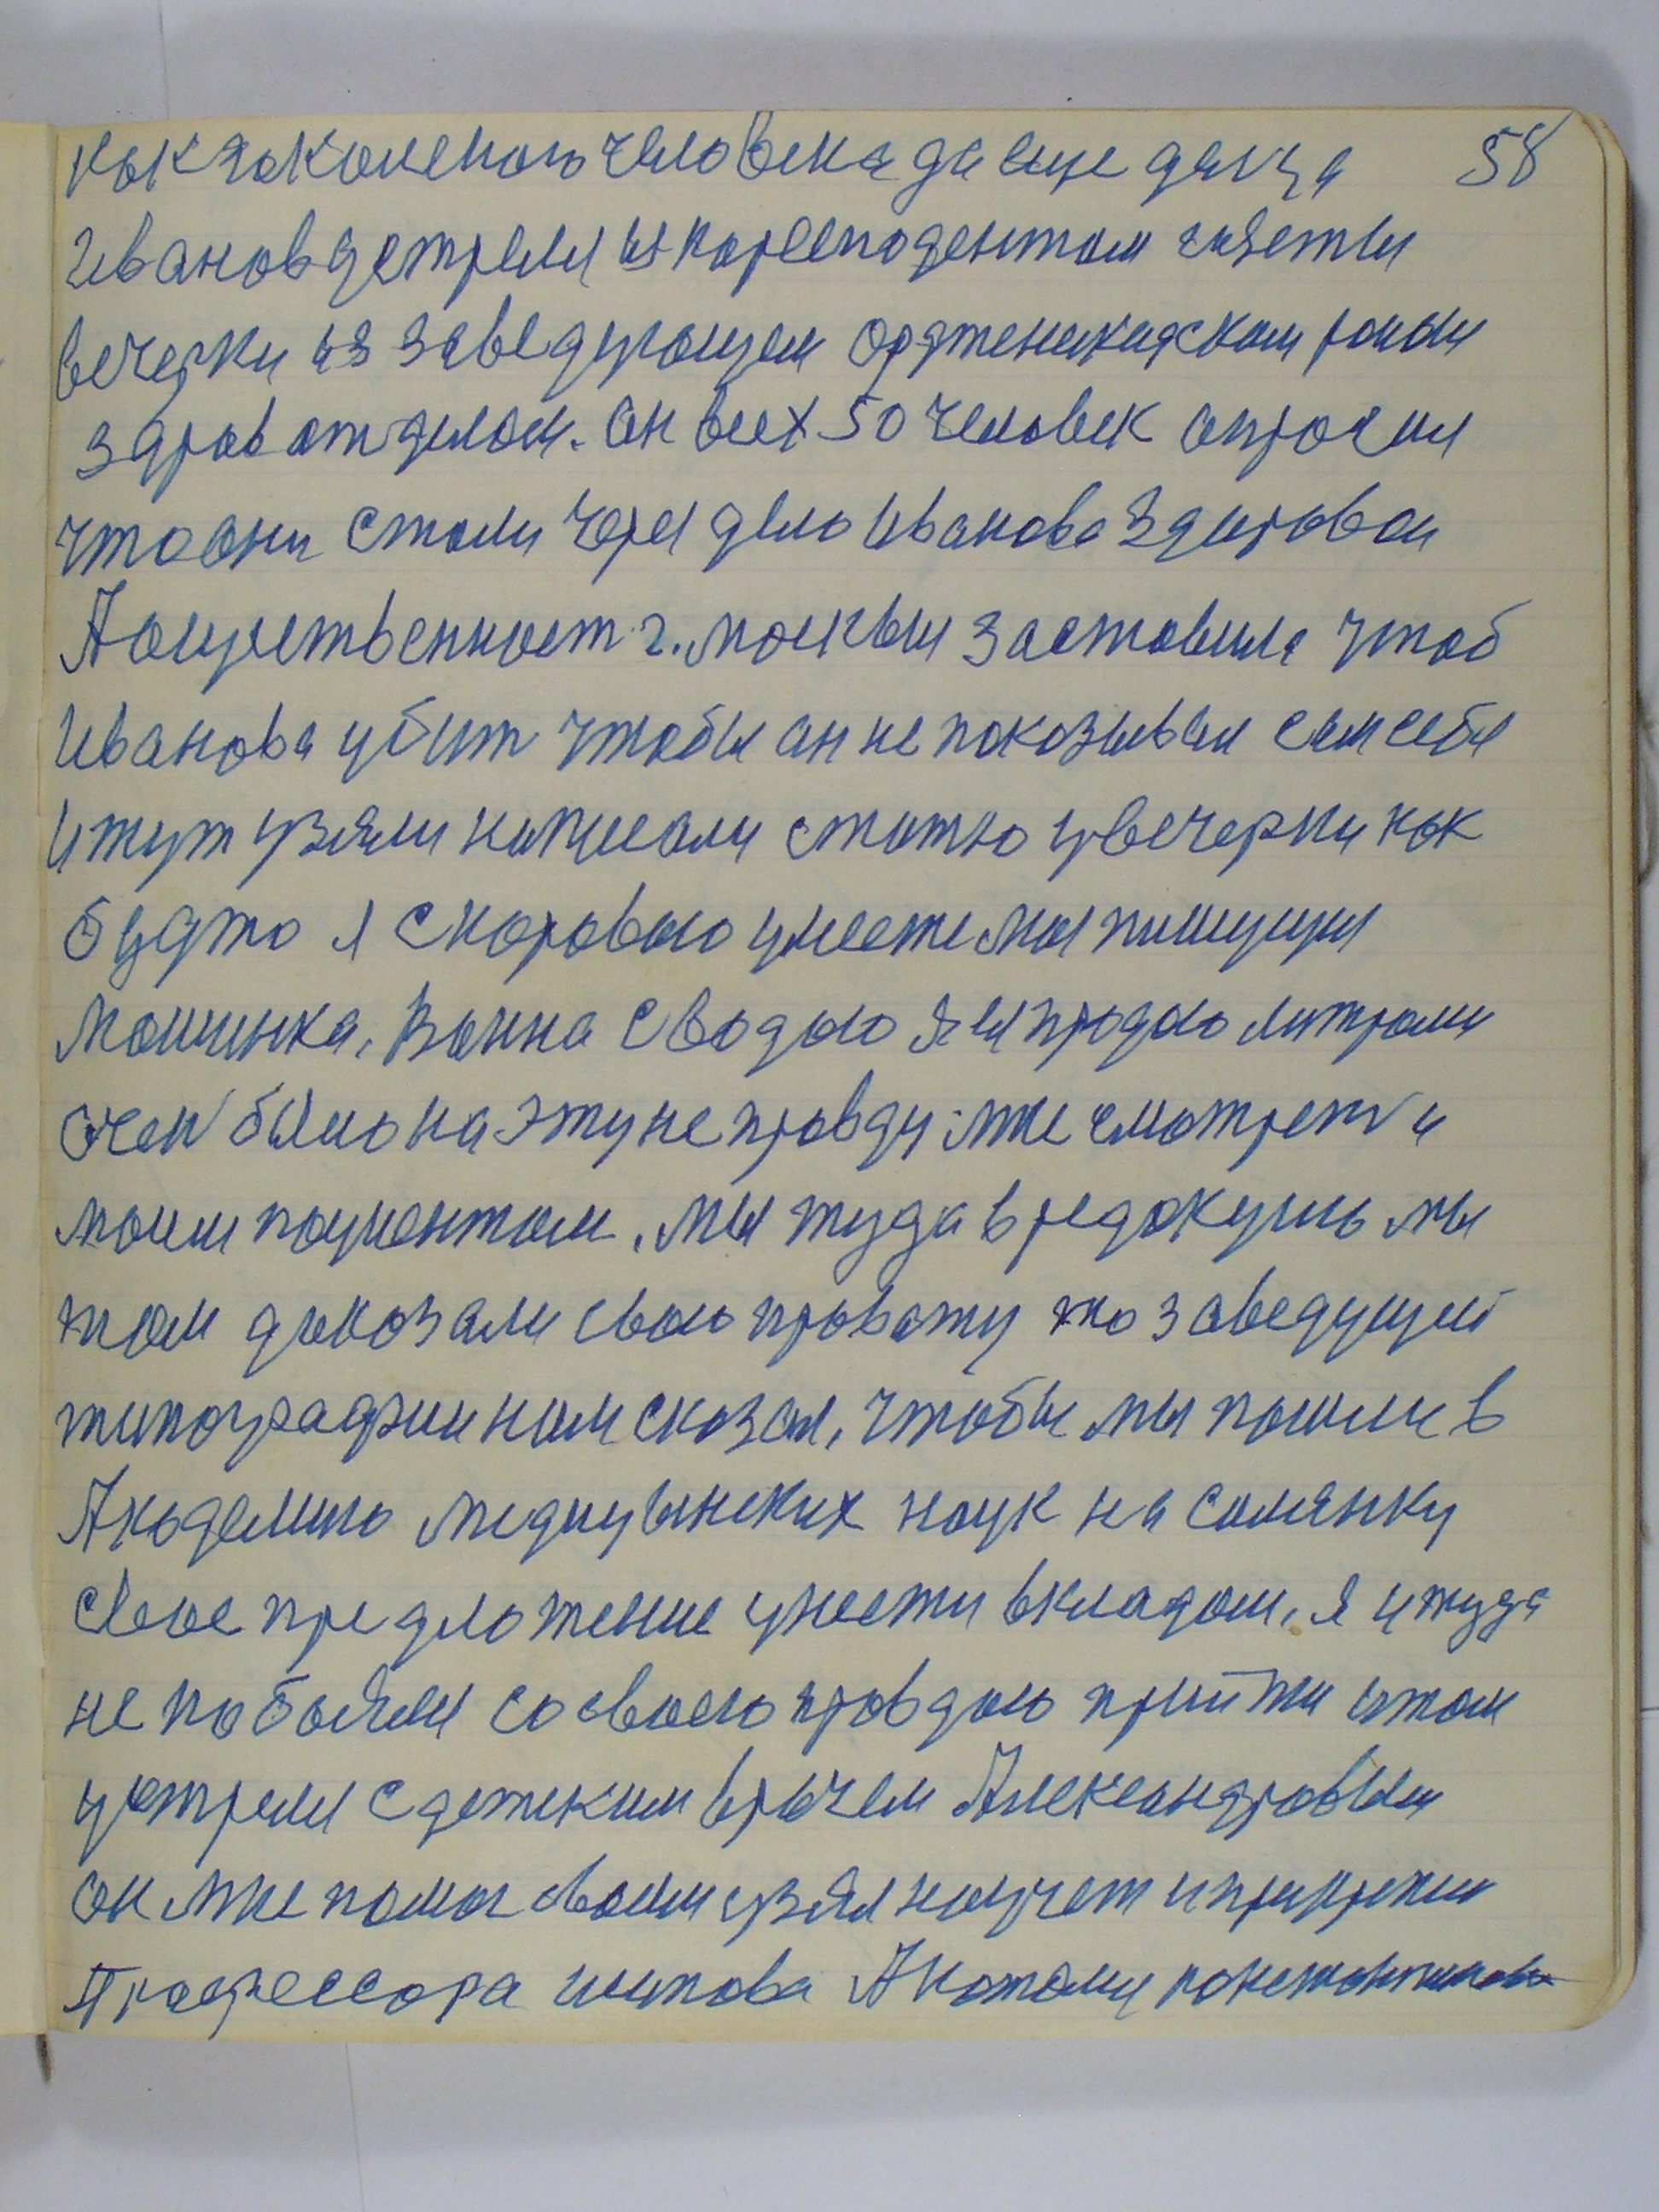 как законеного человека да еще даища 58
Иванов устрелил из коресподентом газеты
вечерки из заведующем Орджоникидзском роном
здрав отделом. Он всех 50 человек опросил
что они стали через дело Иванова здоровои
А опщественност г. москвы заставила чтоб
Иванова убит чтобы он не показывал сам себя
и тут узяли написали статю у вечерки как
будто я с коровою умести моя пишущия
машинка, Ванна с водою я ея продаю литрами
очен было на эту не правду мне смотрет и
моим пациентом. Мы туда в редакцию мы
там доказали свою правоту то заведущий
типографии нам сказал, чтобы мы пошли в
Академию медицынских наук на Солянку
свое предложение унести вкладом. Я и туда
не побоялся со своею правдою прийти и там
устрелся с детским врачем Александровым
он мне помог своим узял на учет и прикрепил
Профессора Шипова А потому